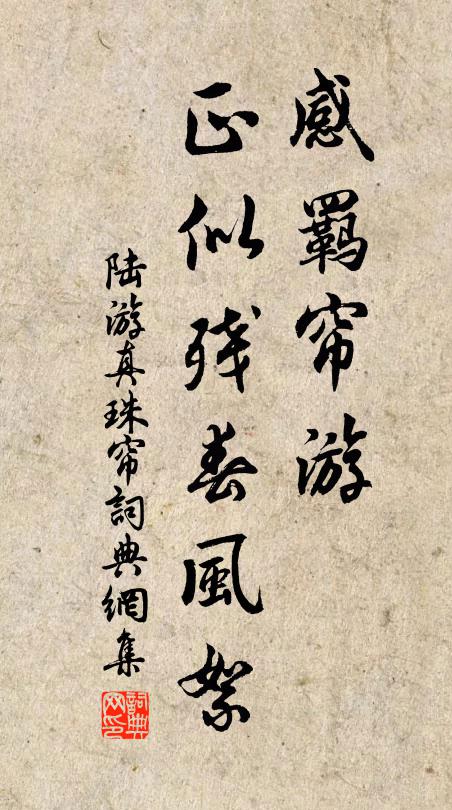 感羁帘游
正似残春風絮
陆游真珠帘詞典網集
詞典网印